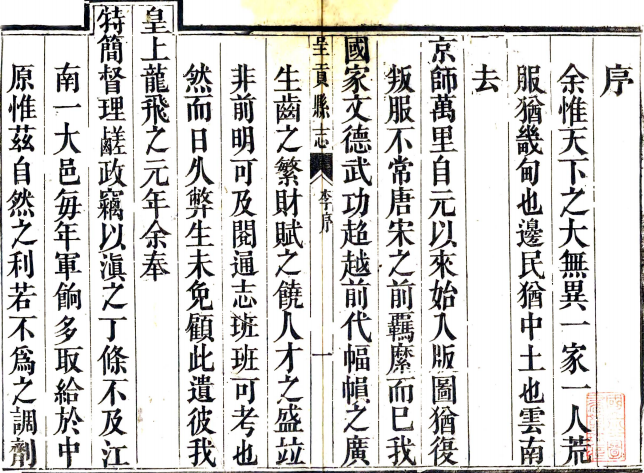 序
余惟天下之大無異一家一人荒
服猶畿甸也邊民猶中土也雲南
去
京師萬里自元以來始入版圖猶復
叛服不常唐宋之前羈縻而已我
國家文德武功超越前代幅幀之廣
呈貢縣志 李序 一
生齒之繁財賦之饒人才之盛竝
非前明可及閱通志班班可考也
然而日久弊生未免顧此遺彼我
皇上龍飛之元年余奉
特簡督理鹺政竊以滇之丁條不及江
南一大邑每年軍餉多取給於中
原惟茲自然之利若不爲之調劑